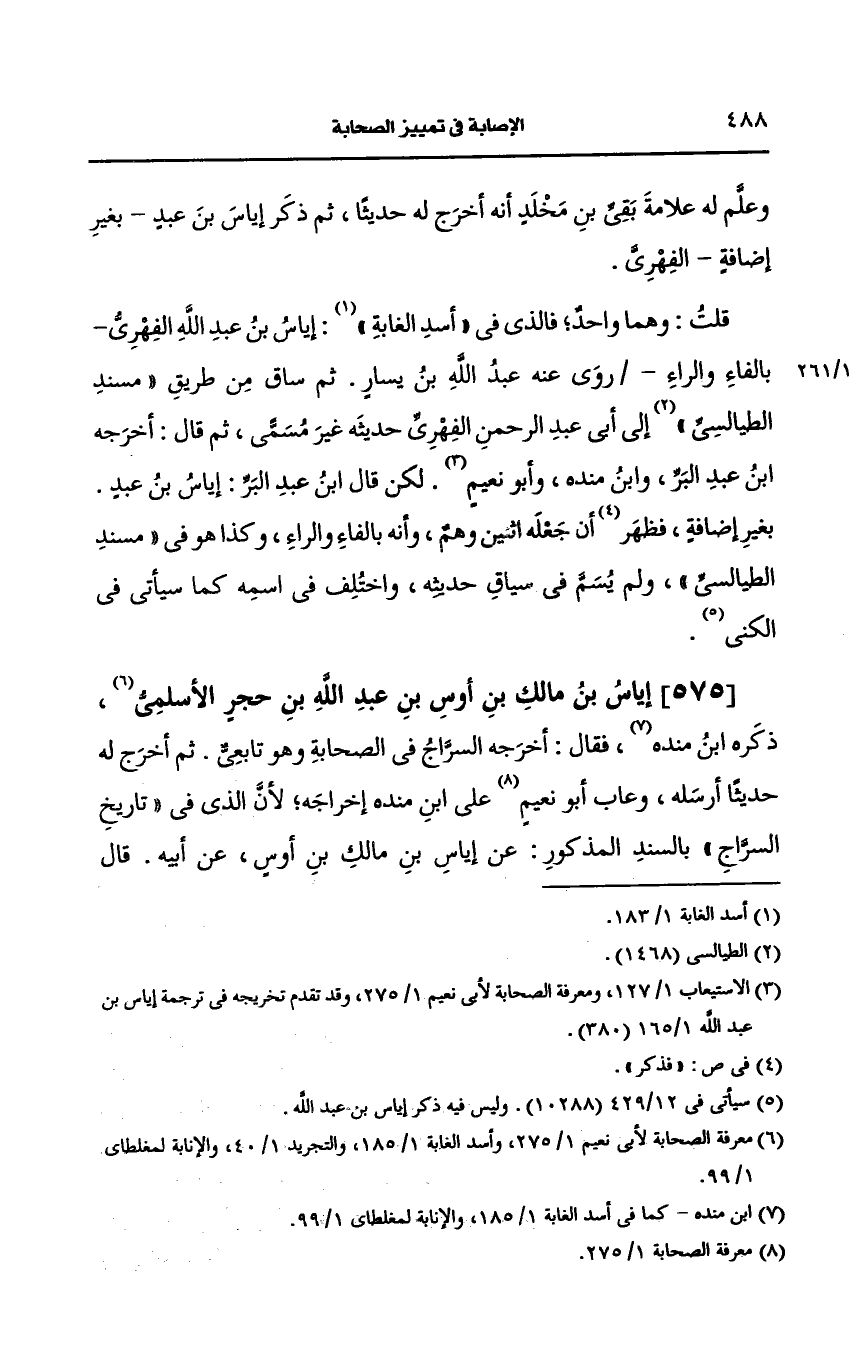 ٤٨٨ الإصابة فى تمييز الصحابة
وعلَّم له علامةَ بَقِىِّ بنِ مَخْلَدٍ أنه أخرَج له حديثًا ، ثم ذكَر إياسَ بنَ عبدٍ - بغيرِ
إضافةٍ - الفِهْرِىَّ .
قلتُ : وهما واحدٌ؛ فالذى فى « أسدِ الغابةِ »(١) : إياسُ بنُ عبدِ اللَّهِ الفِهْرِىُّ-
بالفاءِ والراءِ - / روَى عنه عبدُ اللَّهِ بنُ يسارٍ . ثم ساق مِن طريقِ « مسندِ ٢٦١/١
الطيالسِىِّ »(٢) إلى أبى عبدِ الرحمنِ الفِهْرِىِّ حديثَه غيرَ مُسَمًّى ، ثم قال : أخرَجه
ابنُ عبدِ البَرِّ ، وابنُ منده ، وأبو نعيمٍ(٣) . لكن قال ابنُ عبدِ البَرِّ : إياسُ بنُ عبدٍ .
بغيرِ إضافةٍ ، فظهَر(٤) أن جَعْلَه اثنين وهمٌ ، وأنه بالفاءِ والراءِ ، وكذا هو فى « مسندِ
الطيالسىِّ » ، ولم يُسَمَّ فى سياقِ حديثِه ، واختُلِف فى اسمِه كما سيأتى فى
الكنى(٥) .
[٥٧٥] إياسُ بنُ مالكِ بنِ أوسِ بنِ عبدِ اللَّهِ بنِ حجرٍ الأسلمِىُّ(٦) ،
ذكَره ابنُ منده(٧) ، فقال : أخرَجه السرَّاجُ فى الصحابةِ وهو تابعِىٌّ . ثم أخرَج له
حديثًا أرسَله ، وعاب أبو نعيمٍ(٨) على ابنِ منده إخراجَه؛ لأنَّ الذى فى « تاريخِ
السرَّاجِ » بالسندِ المذكورِ : عن إياسِ بنِ مالكِ بنِ أوسٍ ، عن أبيه . قال
(١) أسد الغابة ١/ ١٨٣.
(٢) الطيالسى (١٤٦٨) .
(٣) الاستيعاب ١/ ١٢٧، ومعرفة الصحابة لأبى نعيم ١/ ٢٧٥، وقد تقدم تخريجه فى ترجمة إياس بن
عبد اللَّه ١٦٥/١ (٣٨٠) .
(٤) فى ص : « فذكر » .
(٥) سيأتى فى ٤٢٩/١٢ (١٠٢٨٨) . وليس فيه ذكر إياس بن عبد اللَّه .
(٦) معرفة الصحابة لأبى نعيم ١/ ٢٧٥، وأسد الغابة ١/ ١٨٥، والتجريد ١/ ٤٠، والإنابة لمغلطاى
١/ ٩٩.
(٧) ابن منده - كما فى أسد الغابة ١/ ١٨٥، والإنابة لمغلطاى ١/ ٩٩.
(٨) معرفة الصحابة ١/ ٢٧٥.